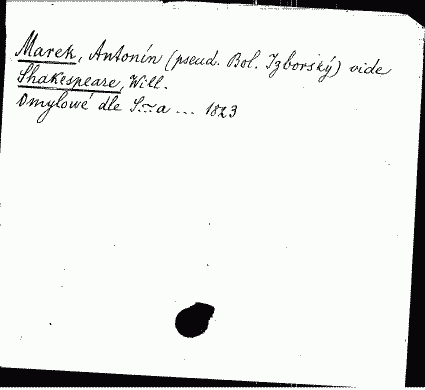 Marek, Antonín (pseud. Bol. Izborský) vide
Shakespeare, Will.
Omylowé dle S.~a ... 1823